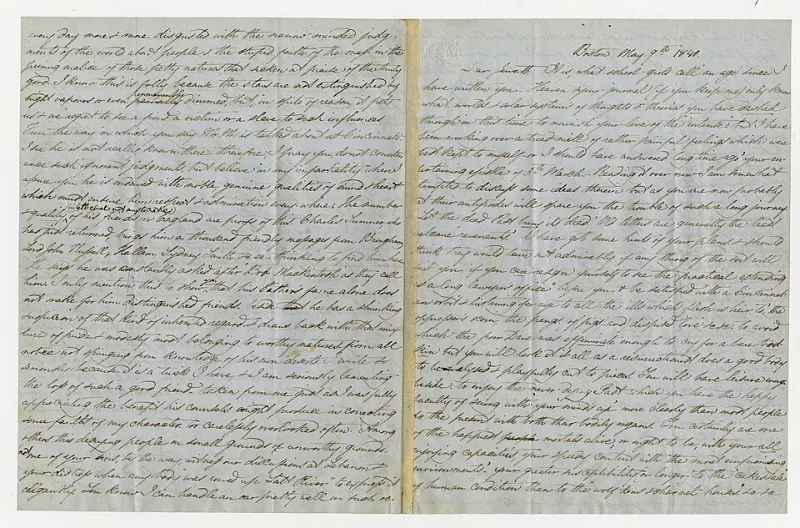 Boston May 9th 1840.
Dear Jewett It is, what school girls call "an age" since I
have written you. Heaven & your journal, if you keep one, only know
what worlds & solar systems of thoughts & theories you have dashed
through in that time to nourish your love of the intense; but I have
been working over a tread mill of rather painful feelings which were
best kept to myself or I should have answered long time ago your en-
tertaining epistle of 5th March. Reading it over now I am somewhat
tempted to discuss some ideas therein but as you are now probably
at their antipodes will spare you the trouble of such a long journey
"Let the dead past bury its dead" Old letters are generally the least
welcome revenants. I have got some hint of your plans & should
think they would turn out admirably if any thing of the sort will
for you, if you can resign quietly to see the practical
in a long lawyer's office I hope you & be satisfied with a Cincinnati
an orbit & listening for aye to all the ills which flesh is heir to the
oppressor's scorn the pangs of pigs and despised love &c &c to avoid
which the poor Dane was effeminate enough to cry for a bare bod-
kin but you will look at it all as a resurrectionist does a good body
to be & playfully cut to pieces You will have leisure
beside to enjoy the never dying Past which you have the happy
faculty of seeing with your mind's eye more clearly than most people
do the present with both their bodily organs. You certainly are one
of the happiest mortals alive, or ought to be with your all
enjoying capacities, your speedy content with the most unpromising
environments your greater susceptibility or longer to the
of human condition than to the wolf dens & charnel houses so so
every day more & more disgusted with the narrow minded judg-
ments of the world about people & the stupid faults of the mass in the
peering malice of those petty natures that sicken at praise of the truly
good. I know this is folly because the stars are not extinguished by
night vapours or even partially dimmed, but in spite of reason it frets
us & we regret to see a friend a victim or a slave to such influences
From the way in which you say Mr M. is talked about at Cincinnati
I see he is not really known there therefore, I pray you, do not counten-
ance such ignorant judgments but believe in my impartiality when I
assure you he is indeed with noble, genuine qualities of mind & heart
which must insure him respect & admiration every where. The number
& quality of his friends in England are proofs of this Charles Sumner who
has just returned brings him a thousand friendly messages from Brougham,
Lord John Russell, Hallam, Sydney Smith, &c &c
he says he was constantly asked after Rob Mackintosh as they call
him. I only mention this to show that his father's fame alone does
not make for him distinguished friends and he has a shrinking
suspicion of that kind of inherited regard & draws back with that mix-
ture of pride & modesty most belonging to worthy natures from all
notice not springing from knowledge of his own deserts. I write so
earnestly because it is a task I have, & I am seriously lamenting
the loss of such a good friend taken from me just as I was fully
appreciating the benefit his counsels might produce in correcting
some faults of my character too carelessly overlooked often. Among
others this decrying people on small grounds or unworthy grounds.
One of your sins, by the way, witness our discussions at Lebanon &
your distress when any body was rowed up "Salt River" to express it
elegantly. You know I can handle an oar pretty well on such oc-